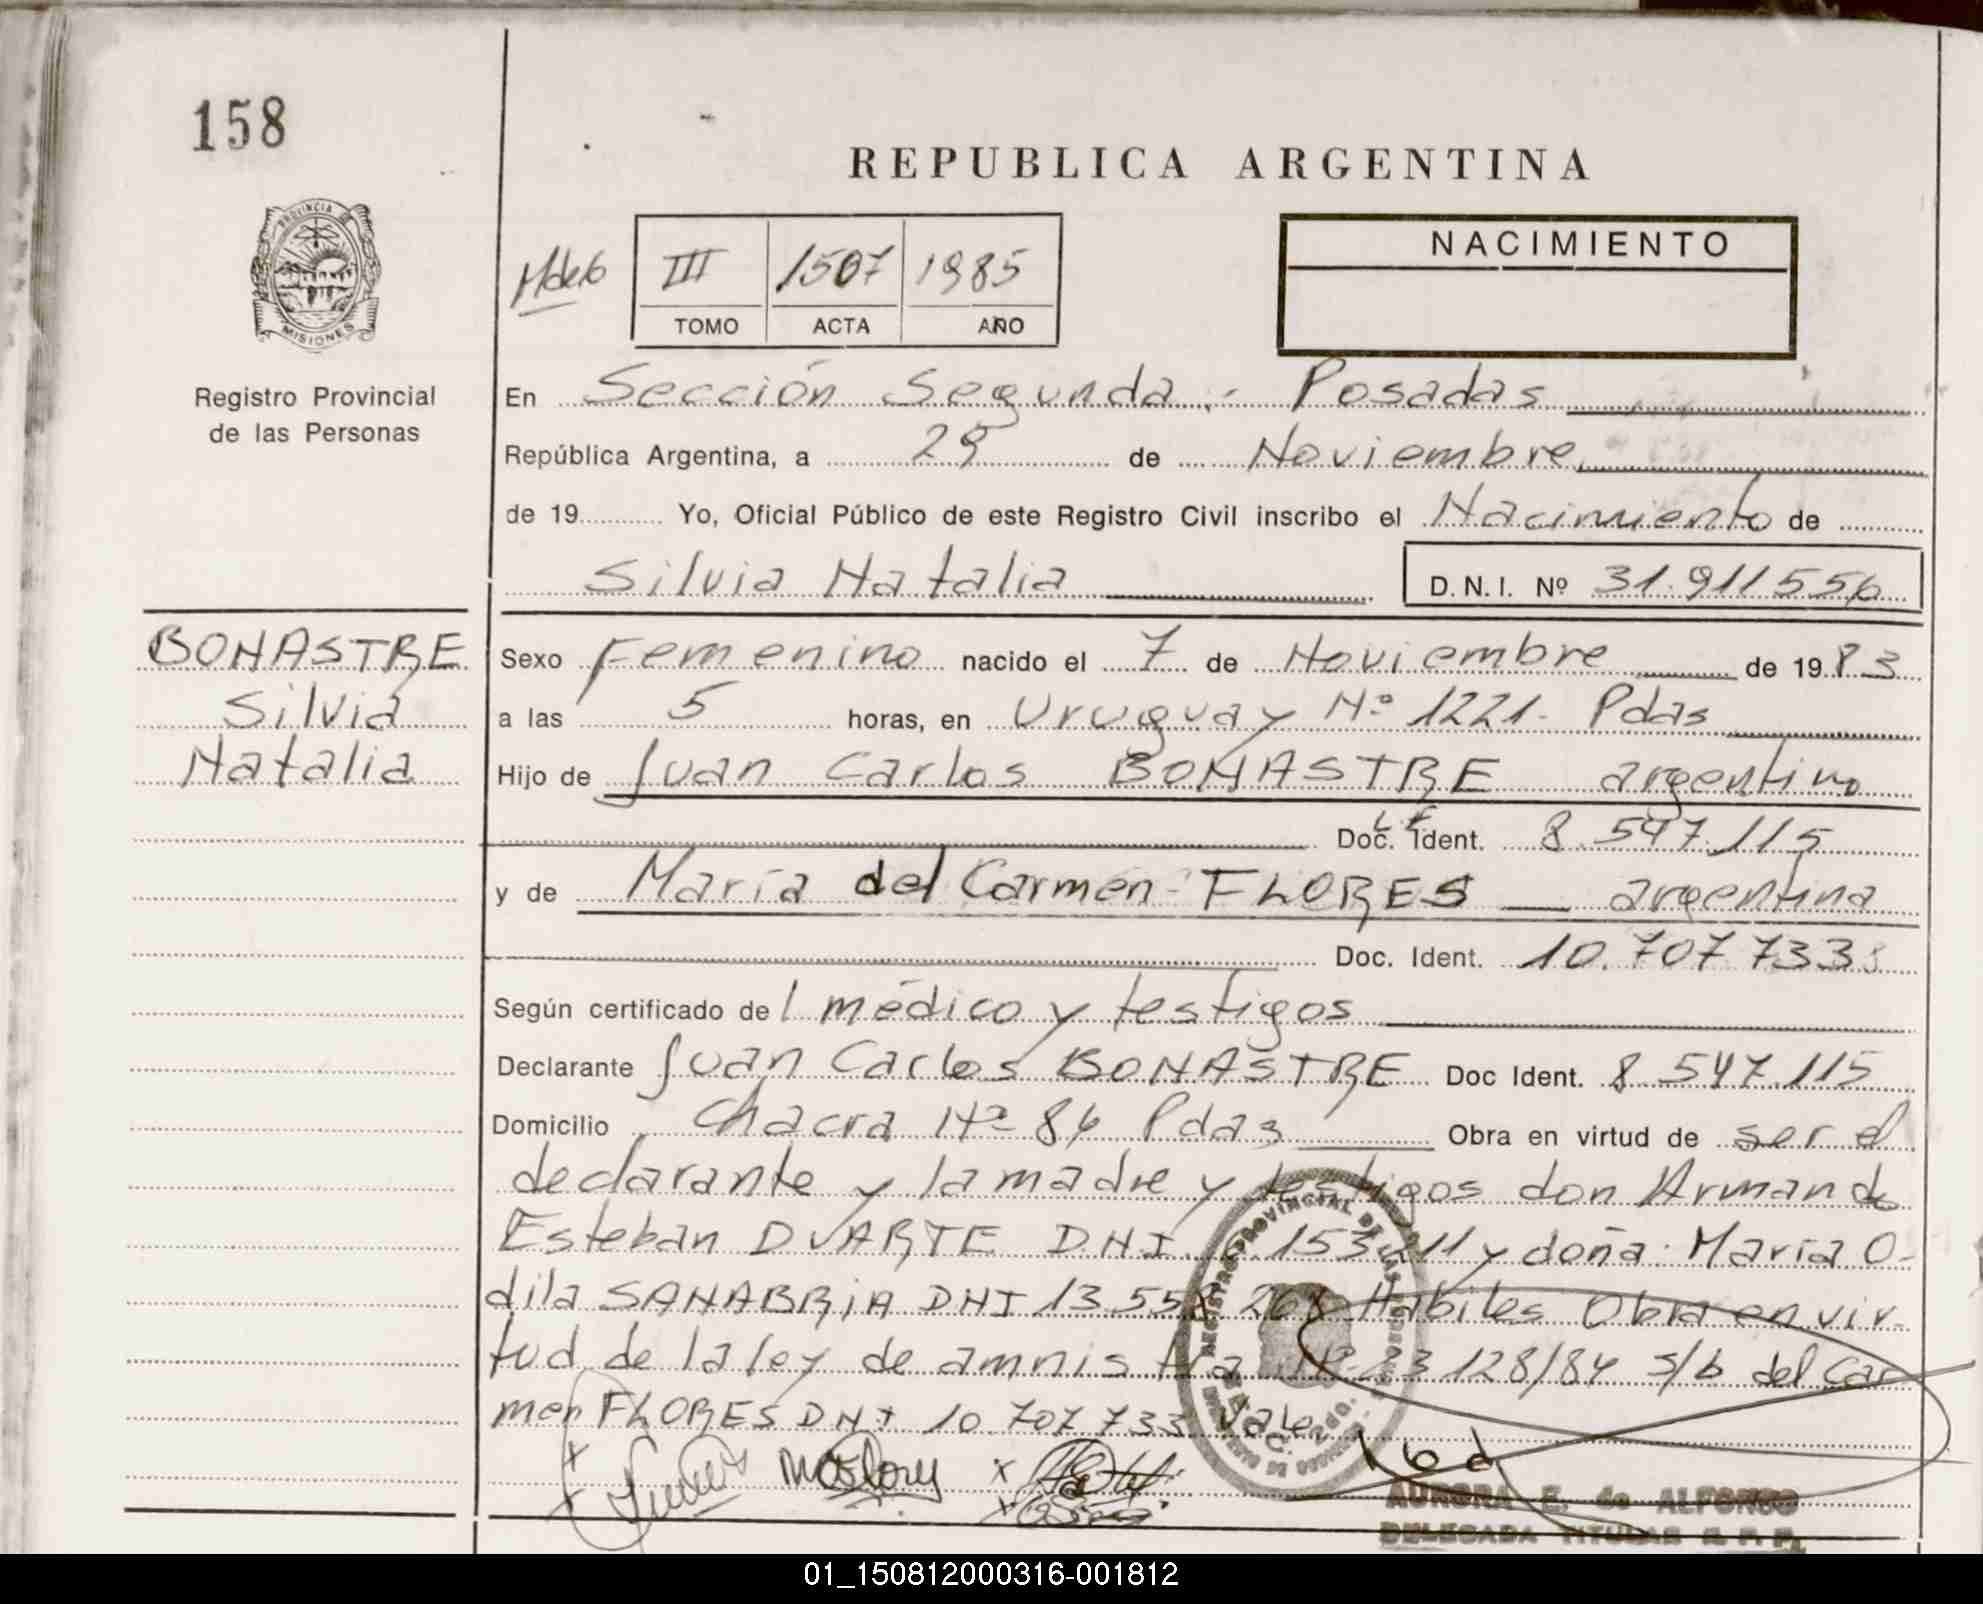 158
REPUBLICA ARGENTINA
PROVINCIA DE
MISIONES
Registro Provincial
de las Personas
III 1507 1985
TOMO ACTA AÑO
NACIMIENTO
En Sección Segunda - Posadas
República Argentina, a 29 de Noviembre
de 19 Yo, Oficial Público de este Registro Civil inscribo el Nacimiento de
Silvia Natalia D.N.I. Nº 31.911556
BONASTRE
Silvia
Natalia
Sexo Femenino nacido el 7 de Noviembre de 1983
a las 5 horas, en Uruguay Nº 1221- Pdas
Hijo de Juan Carlos BONASTRE argentino
Doc. Ident. 8.547.115
y de María del Carmen FLORES argentina
Doc. Ident. 10.707 733
Según certificado del médico y testigos
Declarante Juan Carlos BONASTRE Doc Ident. 8 547.115
Domicilio Chacra Nº 84 Pdas Obra en virtud de ser el
declarante y la madre y testigos don Armando
Esteban DUARTE DNI y doña: María O-
dila SANABRIA DNI Habiles Obra en vir-
tud de la ley de amnistía Nº 23 128/84 s/b del Car
men FLORES DNI 10 707 733 Vale
REGISTRO PROVINCIAL DE LAS PERSONAS
AURORA E. de ALFONSO
DELEGADA TITULAR R. P. P.
01_150812000316-001812